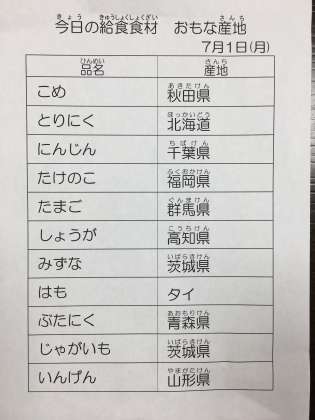 今日の給食食材　おもな産地
7月1日(月)
品名　産地
こめ　秋田県
とりにく　北海道
にんじん　千葉県
たけのこ　福岡県
たまご　群馬県
しょうが　高知県
みずな　茨城県
はも　タイ
ぶたにく　青森県
じゃがいも　茨城県
いんげん　山形県